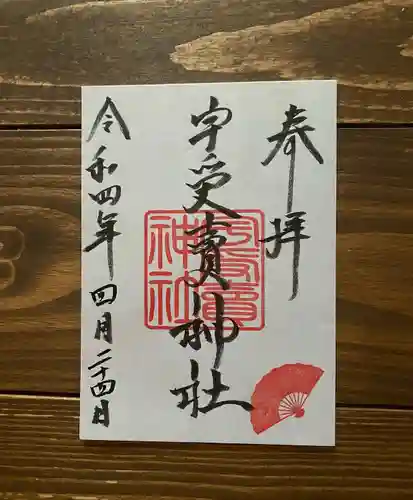 奉拝
宇受賣神社
宇受賣
神社
令和四年 四月二十四日